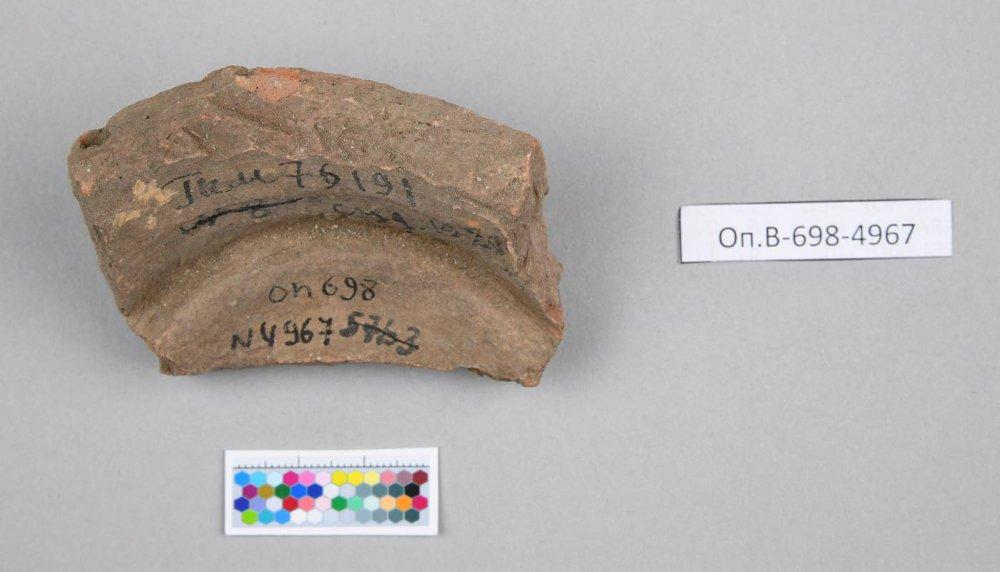 76191
оп 698
N 4967 5763
Оп.В-698-4967